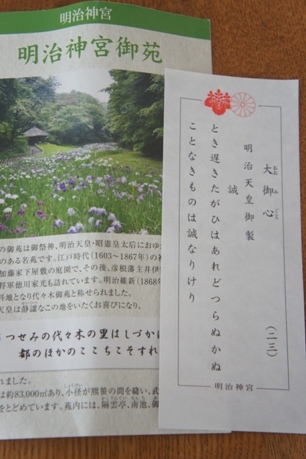 明治神宮
明治神宮御苑
の御苑は御祭神、明治天皇・昭憲皇太后におゆ
のある名苑です。江戸時代（1603〜1867年）の
加藤家下屋敷の庭園で、その後、彦根藩主井伊
将軍徳川家光も訪れています。明治維新（1868
料地となり代々木御苑と称せられました。
天皇は静謐なこの地をいたくお喜びになり、
うつせみの代々木の里はしづか
都のほかのここちこそすれ
れました。
は約83,000㎡あり、小径が熊笹の間を縫い、武
をとどめています。苑内には、隔雲亭、南池、御
大御心
おおみごころ
明治天皇御製
誠
とき遅きたがひはあれどつらぬかぬ
ことなきものは誠なりけり
（二三）
明治神宮